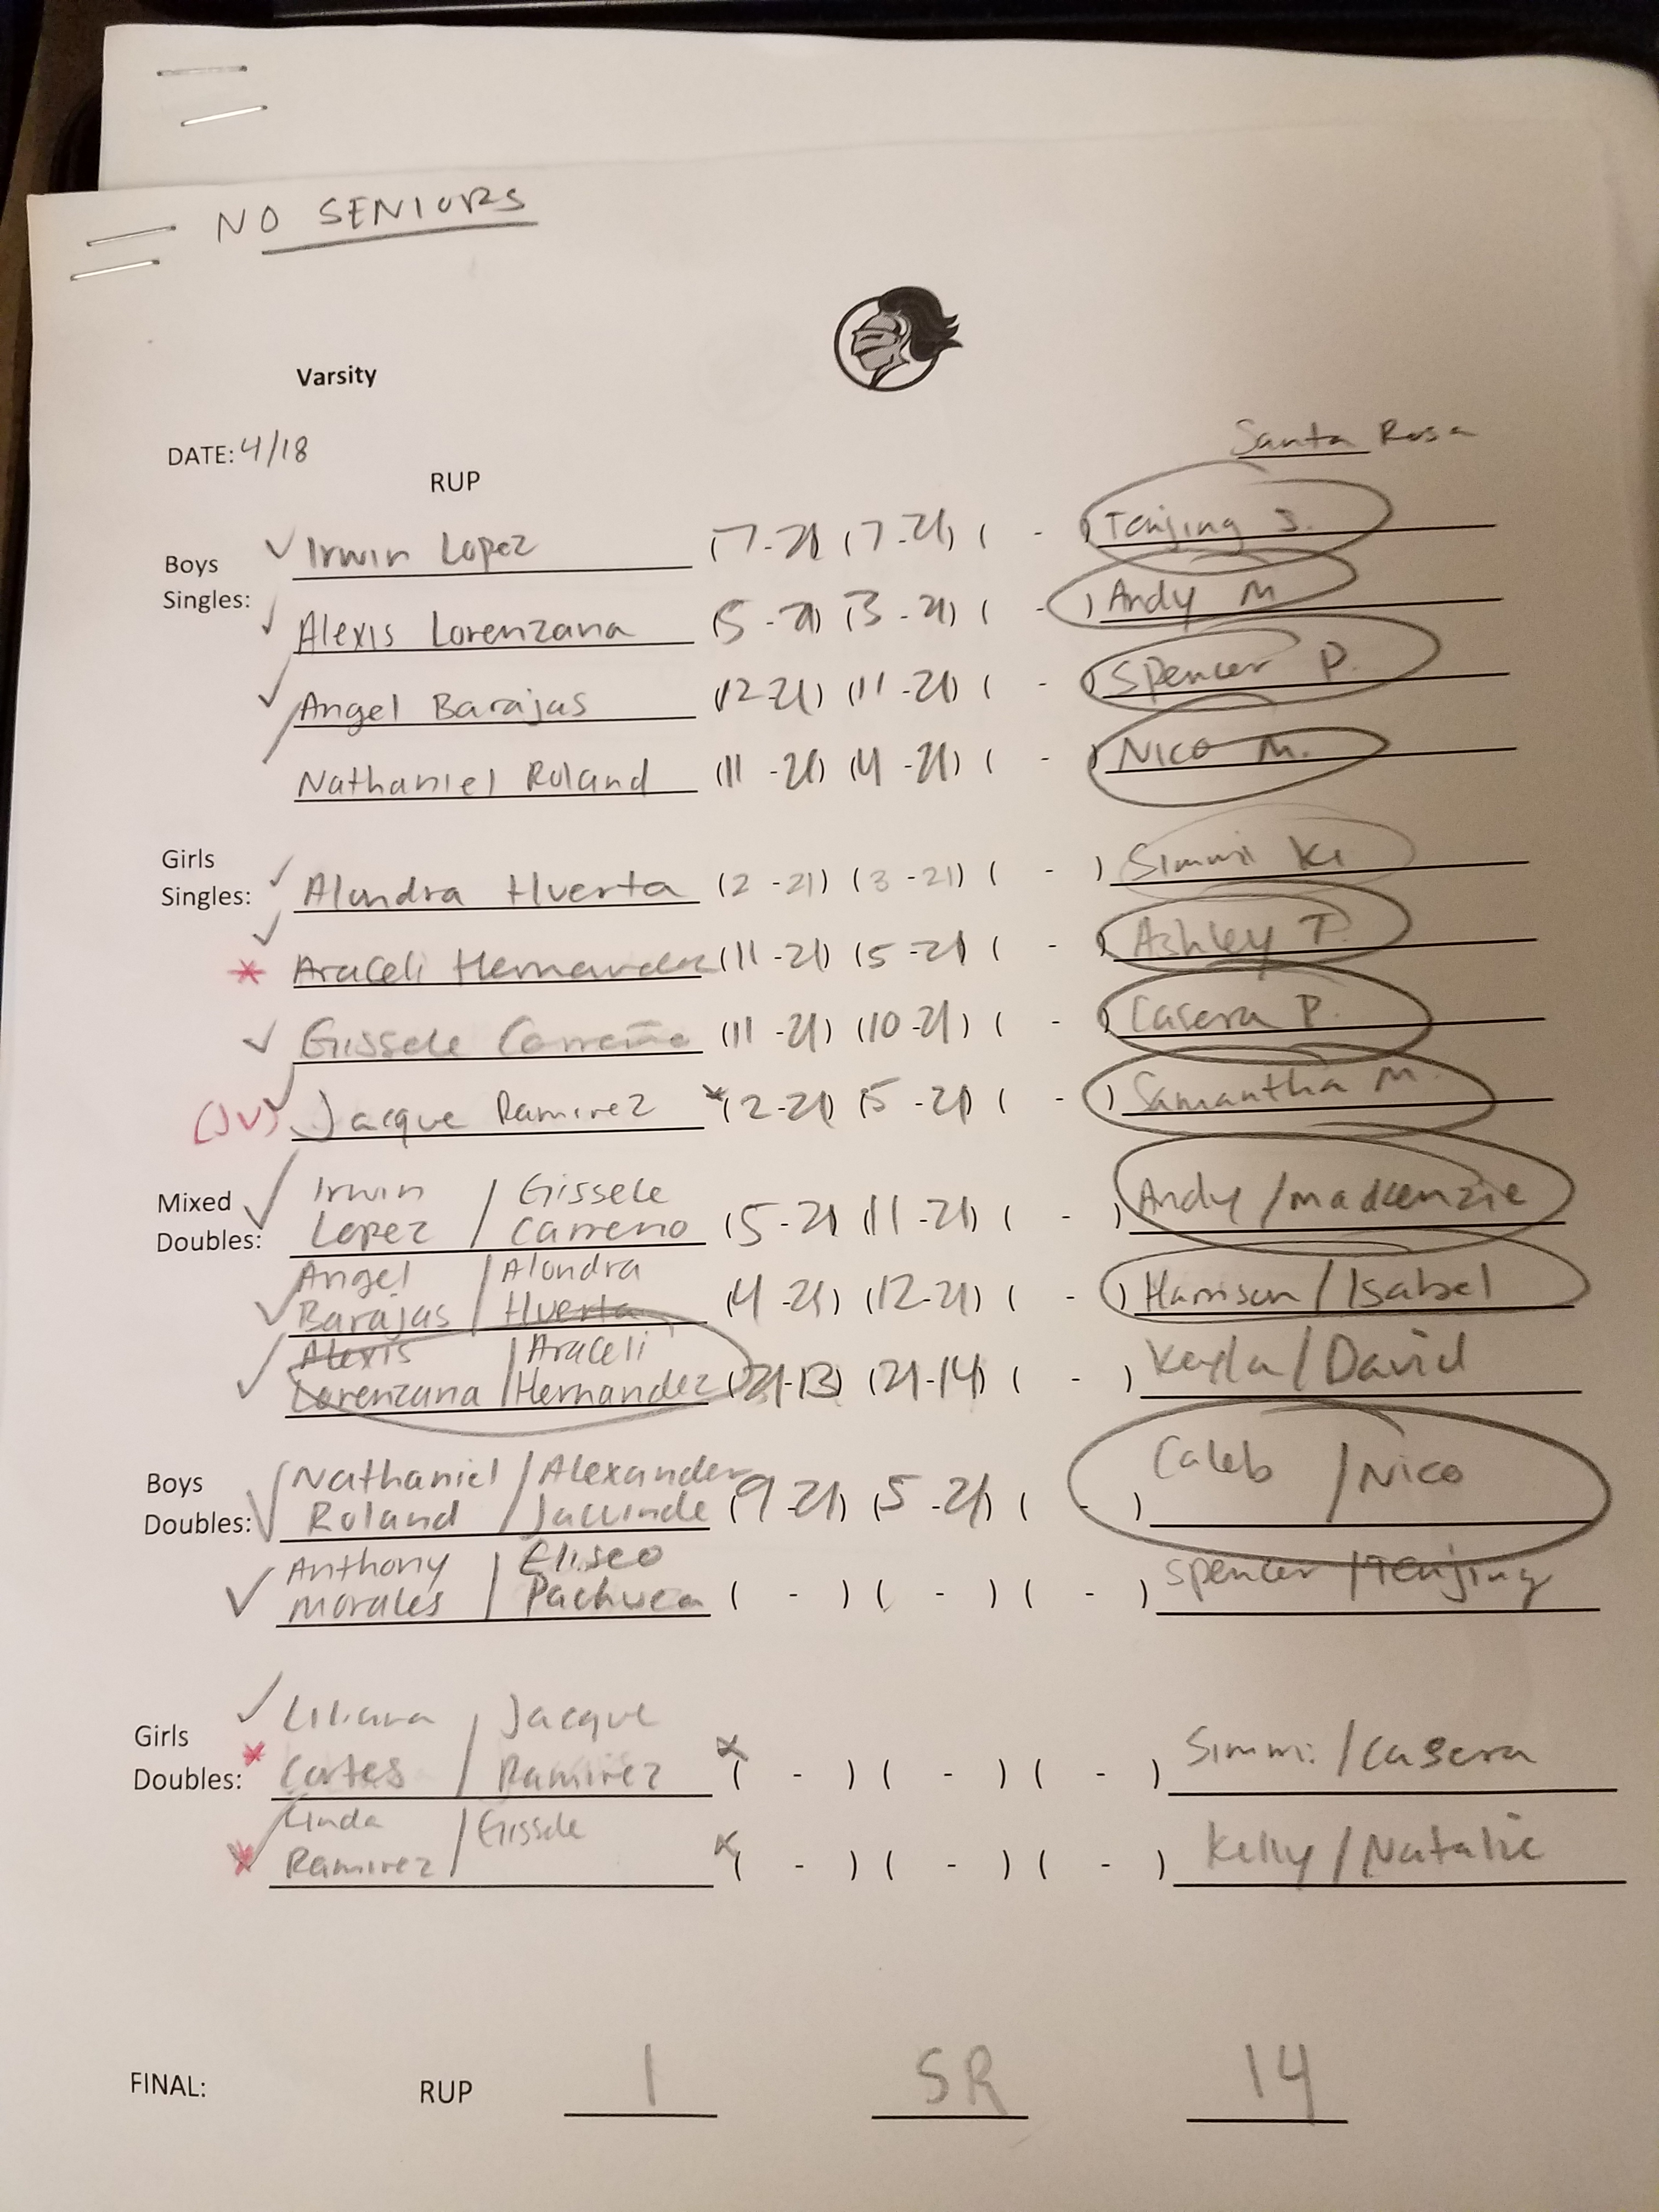 NO SENIORS
Varsity
DATE: 4/18
Santa Rosa
RUP
Boys Singles:
Irwin Lopez (7-21) (7-21) ( - ) Tenjing S.
Alexis Lorenzana (5-21) (3-21) ( - ) Andy M
Angel Barajas (12-21) (11-21) ( - ) Spencer P.
Nathaniel Roland (11-21) (4-21) ( - ) Nico M.
Girls Singles:
Alondra Huerta (2-21) (3-21) ( - ) Simmi K
* Araceli Hernandez (11-21) (5-21) ( - ) Ashley T.
Gissele Carreño (11-21) (10-21) ( - ) Casera P.
(JV) Jacque Ramirez *(2-21) (5-21) ( - ) Samantha M.
Mixed Doubles:
Irwin Lopez / Gissele Carreno (5-21) (11-21) ( - ) Andy/Mackenzie
Angel Barajas / Alondra Huerta (4-21) (12-21) ( - ) Harrison/Isabel
Alexis Lorenzana / Araceli Hernandez (21-13) (21-14) ( - ) Kayla/David
Boys Doubles:
Nathaniel Roland / Alexander (9-21) (5-21) ( - ) Caleb/Nico
Anthony Morales / Eliseo Pachuca ( - ) ( - ) ( - ) Spencer/Tenjing
Girls Doubles:
* Liliana Cortes / Jacque Ramirez ( - ) ( - ) ( - ) Simmi/Casera
* Linda Ramirez / Gissele ( - ) ( - ) ( - ) Kelly/Natalie
FINAL: RUP 1 SR 14